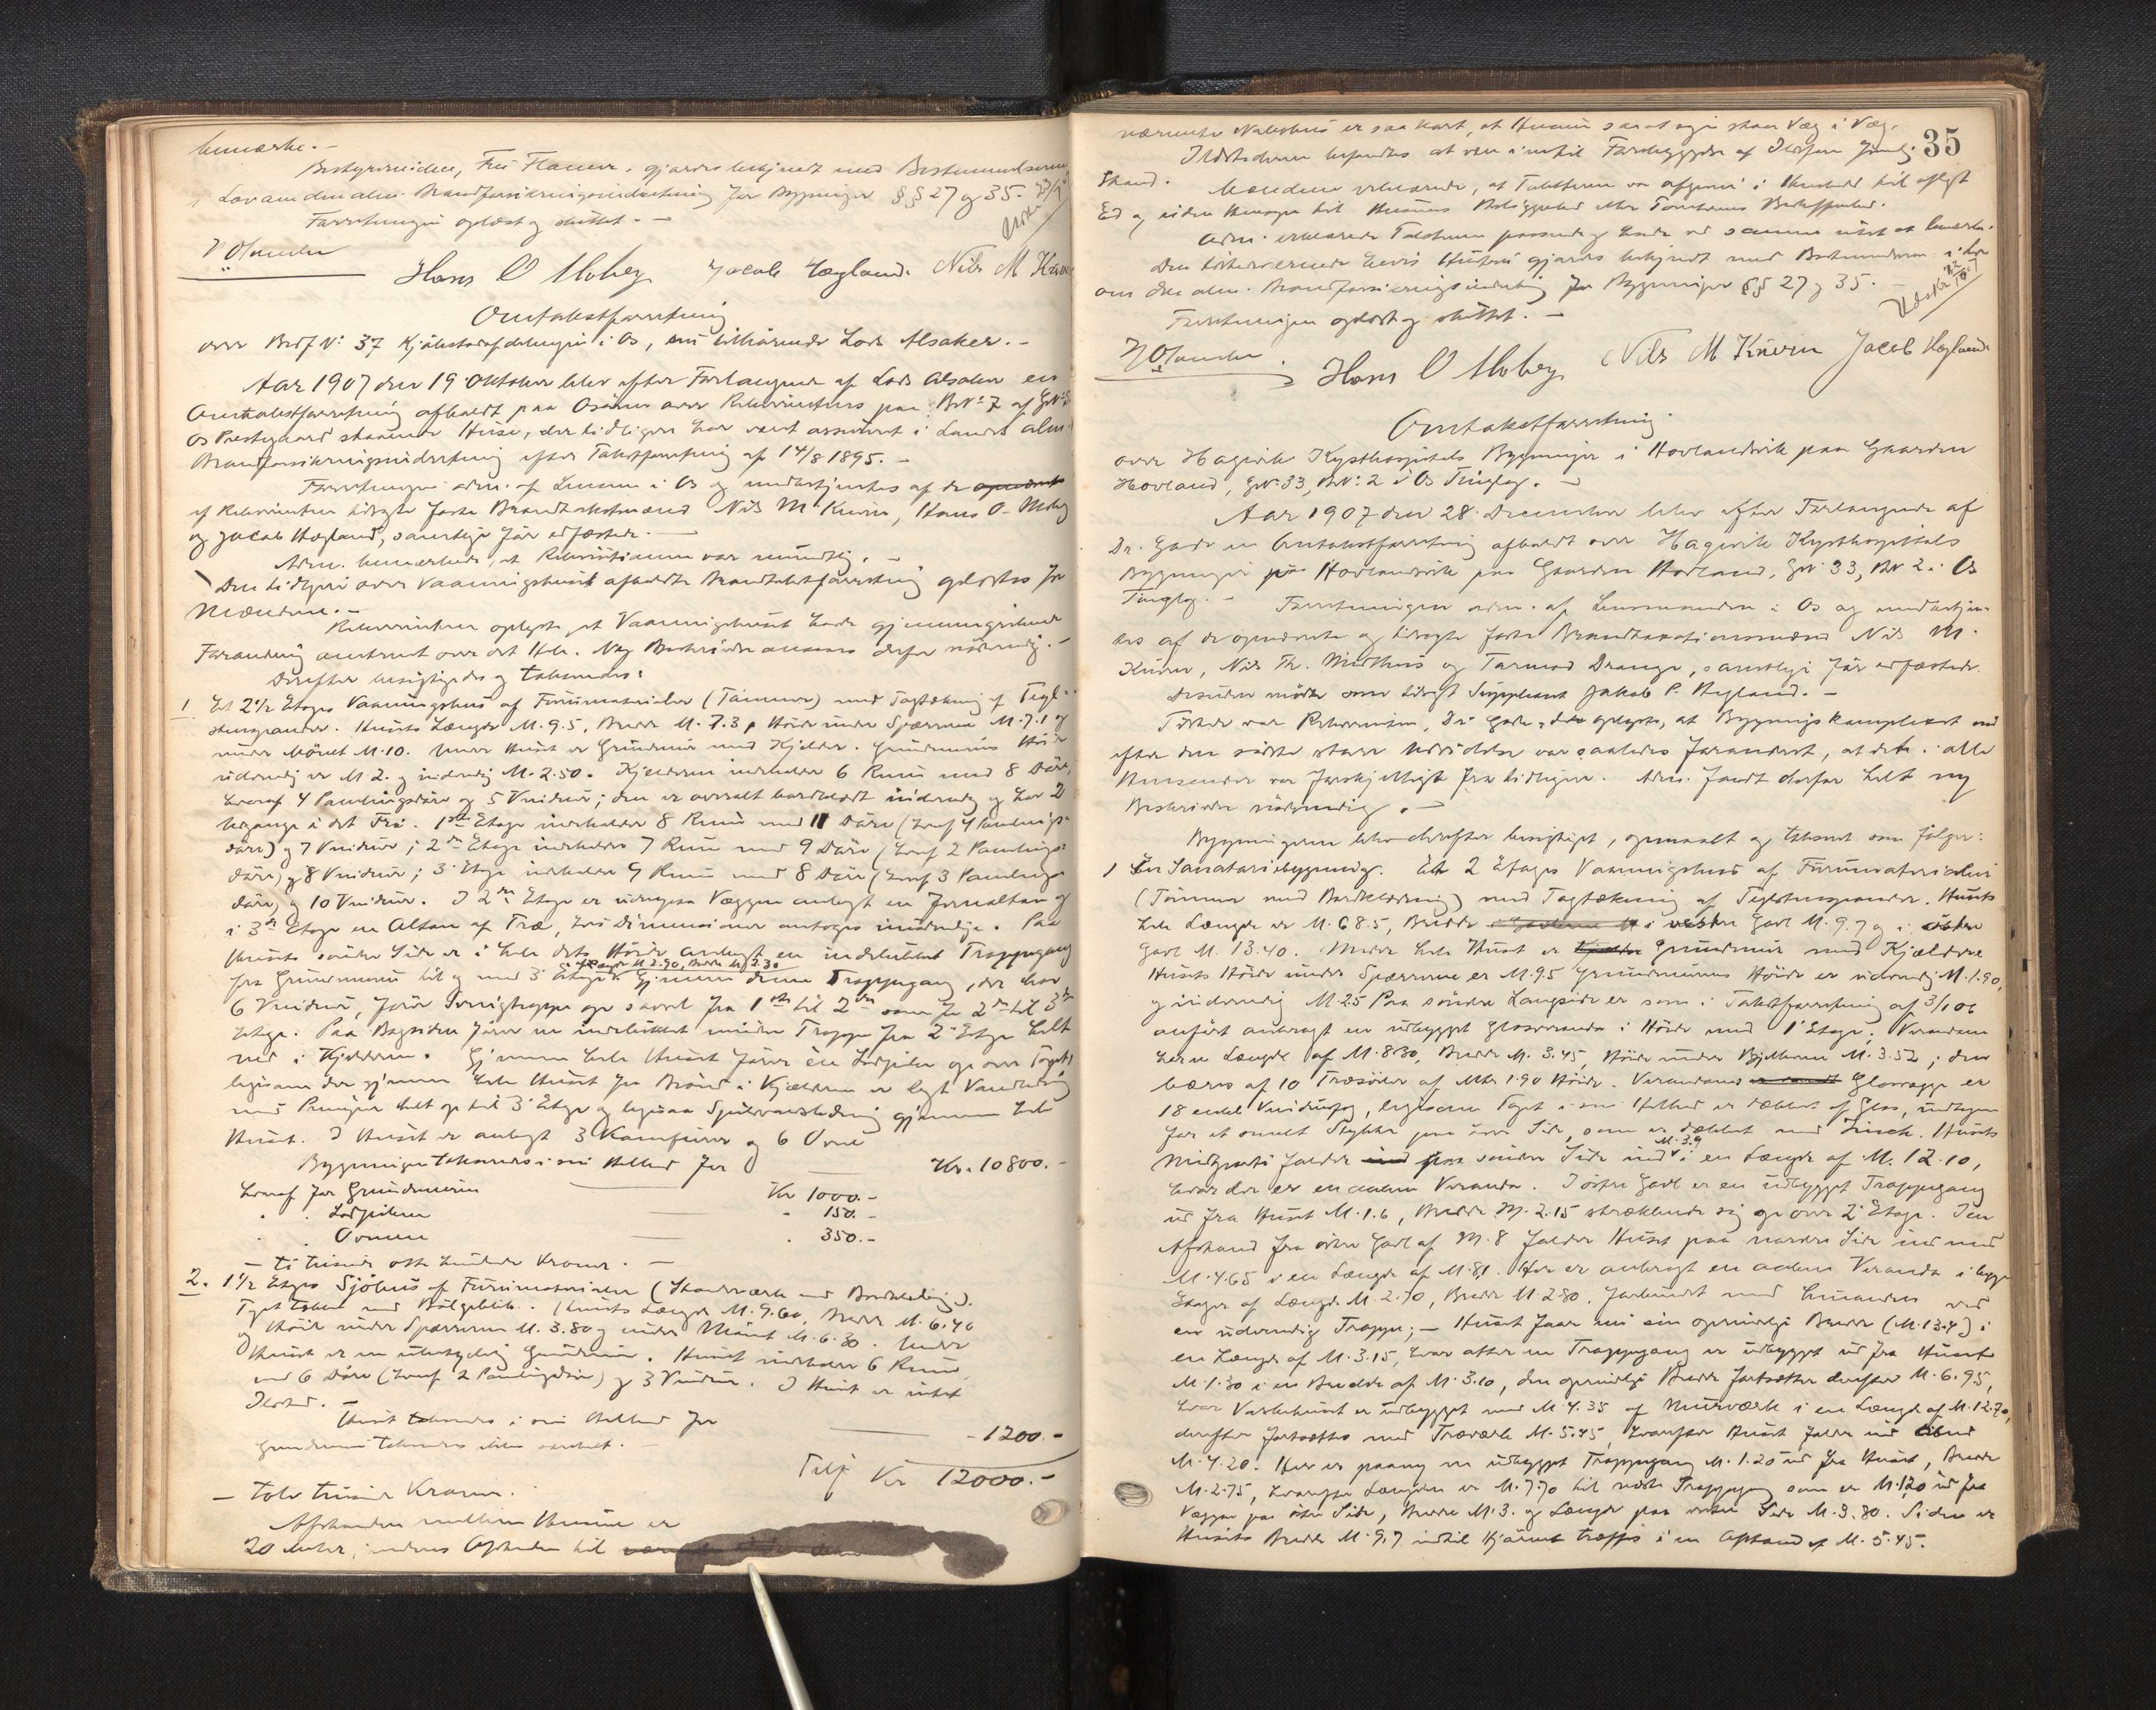 bemærke. -
Bestyrerinden, Frk Flauer, gjordes bekjendt med Bestemmelserne
i Lov om den alm. Brandforsikringsindretning for Bygninger §§ 27 og 35.
Forretningen oplæst og sluttet. -
Hans O Moberg Jacob Hægland. Nils M Kuven
Omtakstforretning
over Brdf N: 37 Kjøbstadafdelingen i Os, nu tilhørende Lars Alsaker. -
Aar 1907 den 19 Oktober blev efter Forlangende af Lars Alsaker en
Omtakstforretning afholdt paa Osøren over Rekvirentens paa BrN: 7 af GrN:
Os Prestegaard staaende Huse, der tidligere har været assureret i Landets alm.
Brandforsikringsindretning efter Takstforretning af 14/8 1895. -
Forretningen adm. af Lensm. i Os og meddeltjentes af de opnævnte
af Rekvirenten tilsagte faste Brandtakstmænd Nils M Kuven, Hans O. Moberg
og Jacob Hægland, samtlige før edfæstede. -
Adm. bemærkede, at Rekvisitionen var mundtlig. -
Den tidligere over Vaaningshuset afholdte Brandtakstforretning oplæstes for
Mændene. -
Rekvirenten oplyste, at Vaaningshuset havde gjennemgaaende
Forandring omtrent over det Hele. Ny Beskrivelse ansaaes derfor nødvendig. -
Derefter besigtigedes og taksertes:
1 Et 2 1/2 Etages Vaaningshus af Furumaterialer (Tømmer) med Tagtækning af Tegl-
stenspander. Husets Længde M. 9.5, Bredde M. 7.3, Høide under Spærrene M. 7.1 og
under Mønet M. 10. Under Huset er Grundmur med Kjelder. Grundmurens Høide
udvendig er M 2. og indvendig M. 2.50. Kjelderen indeholder 6 Rum med 8 Døre,
hvoraf 4 Panelingsdøre og 5 Vinduer; den er overalt bordklædt indvendig og har 2
Udgange i det Fri. 1ste Etage indeholder 8 Rum med 11 Døre (hvoraf 4 Panelings-
døre) og 7 Vinduer; 2den Etage indeholder 7 Rum med 9 Døre (hvoraf 2 Panelings-
døre) og 8 Vinduer; 3' Etage indeholder 9 Rum med 8 Døre (hvoraf 3 Panelings-
døre) og 10 Vinduer. I 2den Etage er udenpaa Væggen anbragt en Jernaltan og
i 3die Etage en Altan af Træ, hvis Dimensioner antages unødvendige. Paa
Husets søndre Side er i hele dets Høide anbragt en indelukket Trappegang
fra Grundmuren til og med 3' Etage. Længde M 2.90, Bredde M 2.30 Gjennem denne Trappegang, der har
6 Vinduer, fører Svingtrappe op saavel fra 1ste til 2den som fra 2den til 3die
Etage. Paa Bagsiden fører en indelukket mindre Trappe fra 2' Etage helt
ned i Kjelderen. Gjennem hele Huset fører en Ildpibe op over Taget,
ligesom der gjennem hele Huset fra Brønd i Kjelderen er lagt Vandledning
med Pumper helt op til 3' Etage og ligesaa Spildevandsledning gjennem hele
Huset. I Huset er anlagt 3 Komfurer og 6 Ovne
Bygningen takseredes i sin Helhed for Kr. 10800. -
hvoraf for Grundmuren Kr 1000. -
" " Ildpiben " 150. -
" " Ovnene " 350. -
- ti tusinde otte hundrede Kroner. -
2. 1 1/2 Etages Sjøhus af Furumaterialer (Standværk med Bordklædning).
Taget tækket med Bølgeblik. Husets Længde M. 9.60, Bredde M. 6.40
og Høide under Spærrene M. 3.80 og under Mønet M. 6.30. Under
Huset er en ubetydelig Grundmur. Huset indeholder 6 Rum
med 6 Døre (hvoraf 2 Panelingsdøre) og 3 Vinduer. I Huset er intet
Ildsted. -
Huset takseredes i sin Helhed for - 1200. -
Grundmuren takseredes ikke særskilt. -
Tils Kr 12000. -
- Tolv tusinde Kroner. -
Afstanden mellem Husene er
20 meter, medens Afstanden til
35
nærmeste Nabohus er saa kort, at Husene saa at sige staar Væg i Væg.
Ildstederne befandtes at være i
Stand. Mændene erklærede, at Taksterne var afgivne i Henhold til aflagt
Ed og uden Hensyn til Husenes Beliggenhed eller Tomtens Beskaffenhed.
Adm. erklærede Taksterne passende og havde ved samme intet at bemærke.
Den tilstedeværende Lars Hustru gjordes bekjendt med Bestemmelserne i Lov
om den alm. Brandforsikringsindretning for Bygninger §§ 27 og 35. -
Forretningen oplæst og sluttet. -
Hans O Moberg Nils M Kuven Jacob Hægland
Omtakstforretning
over Hagevik Kysthospitals Bygninger i Hovlandsvik paa Gaarden
Hovland, GrN: 33, BrN: 2 i Os Tinglag. -
Aar 1907 den 28. December blev efter Forlangende af
Dr. Gade en Omtakstforretning afholdt over Hagevik Kysthospitals
Bygninger paa Hovlandsvik paa Gaarden Hovland, GrN 33, BrN 2 i Os
Tinglag. - Forretningen adm. af Lensmanden i Os og meddeltjen-
tes af de opnævnte og tilsagte faste Brandtakstationsmænd Nils M.
Kuven, Nils Th. Midthus og Tormod Drange, samtlige før edfæstede.
Desuden mødte som tilsagt Suppleant Jakob P. Hægland. -
Tilstede var Rekvirenten, Dr Gade, der oplyste, at Bygningskomplexet
efter den sidste store Udvidelse var saaledes forandret, at det i alle
Henseender var forskjelligt fra tidligere. Adm. fandt derfor helt ny
Beskrivelse nødvendig. -
Bygningerne blev derefter besigtiget, opmaalt og takseret som følger:
1 En Sanatoriebygning. Et 2 Etages Vaaningshus af Furumaterialer
(Tømmer med Bordklædning) med Tagtækning af Teglstenspander. Husets
hele Længde er M. 68.5, Bredde i vestre Gavl M. 9.7 og i østre
Gavl M. 13.40. Under hele Huset er Grundmur med Kjældere
Husets Høide under Spærrene er M. 9.5 Grundmurens Høide er udvendig M. 1.90,
og indvendig M. 2.5 Paa søndre Langside er som i Takstforretning af 3/1 06
anført anbragt en udbygget Glasveranda i Høide med 1' Etage; Verandaen
har en Længde af M. 8.30, Bredde M. 3.45, Høide under Bjelkerne M. 3.52; den
bæres af 10 Træsøiler af Mtr 1.90 Høide. Verandaens Glasvægge er
18 enkelte Vinduesfag, ligesom Taget i sin Helhed er dækket af Glas, undtagen
for et smalt Stykke paa hver Side, som er dækket med Zinck. Husets
Midtparti falder paa søndre Side ind M. 3.9 i en Længde af M. 12.10,
hvor der er en aaben Veranda. I østre Gavl er en udbygget Trappegang
ud fra Huset M. 1.6, Bredde M. 2.15 strækkende sig op over 2' Etage. I en
Afstand fra østre Gavl af M. 8 falder Huset paa nordre Side ind med
M. 4.65 i en Længde af M. 8,1. Her er anbragt en aaben Veranda i begge
Etager af Længde M. 2.70, Bredde M 2.80. forbundet med hinanden ved
en udvendig Trappe; - Huset faar nu sin oprindelige Bredde (M. 13.4) i
en Længde af M. 3.15, hvor atter en Trappegang er udbygget ud fra Huset
M. 1.30 i en Bredde af M. 3.10, den oprindelige Bredde fortsætter derefter M. 6.95,
hvor Vaskehuset er udbygget med M. 4.35 af Murværk i en Længde af M. 12.70,
derefter fortsættes med Træværk M. 5.45, hvorefter Huset falder ind
M. 4.20. Her er paany en udbygget Trappegang M. 1.20 ud fra Huset, Bredde
M. 2.75, hvorefter Længden er M. 7.70 til næste Trappegang som er M. 1,20 ud fra
Væggen paa østre Side, Bredde M. 3. og Længde paa vestre Side M. 3.80. Siden er
Husets Bredde M. 9.7 indtil Hjørnet træffes i en Afstand af M. 5.45.